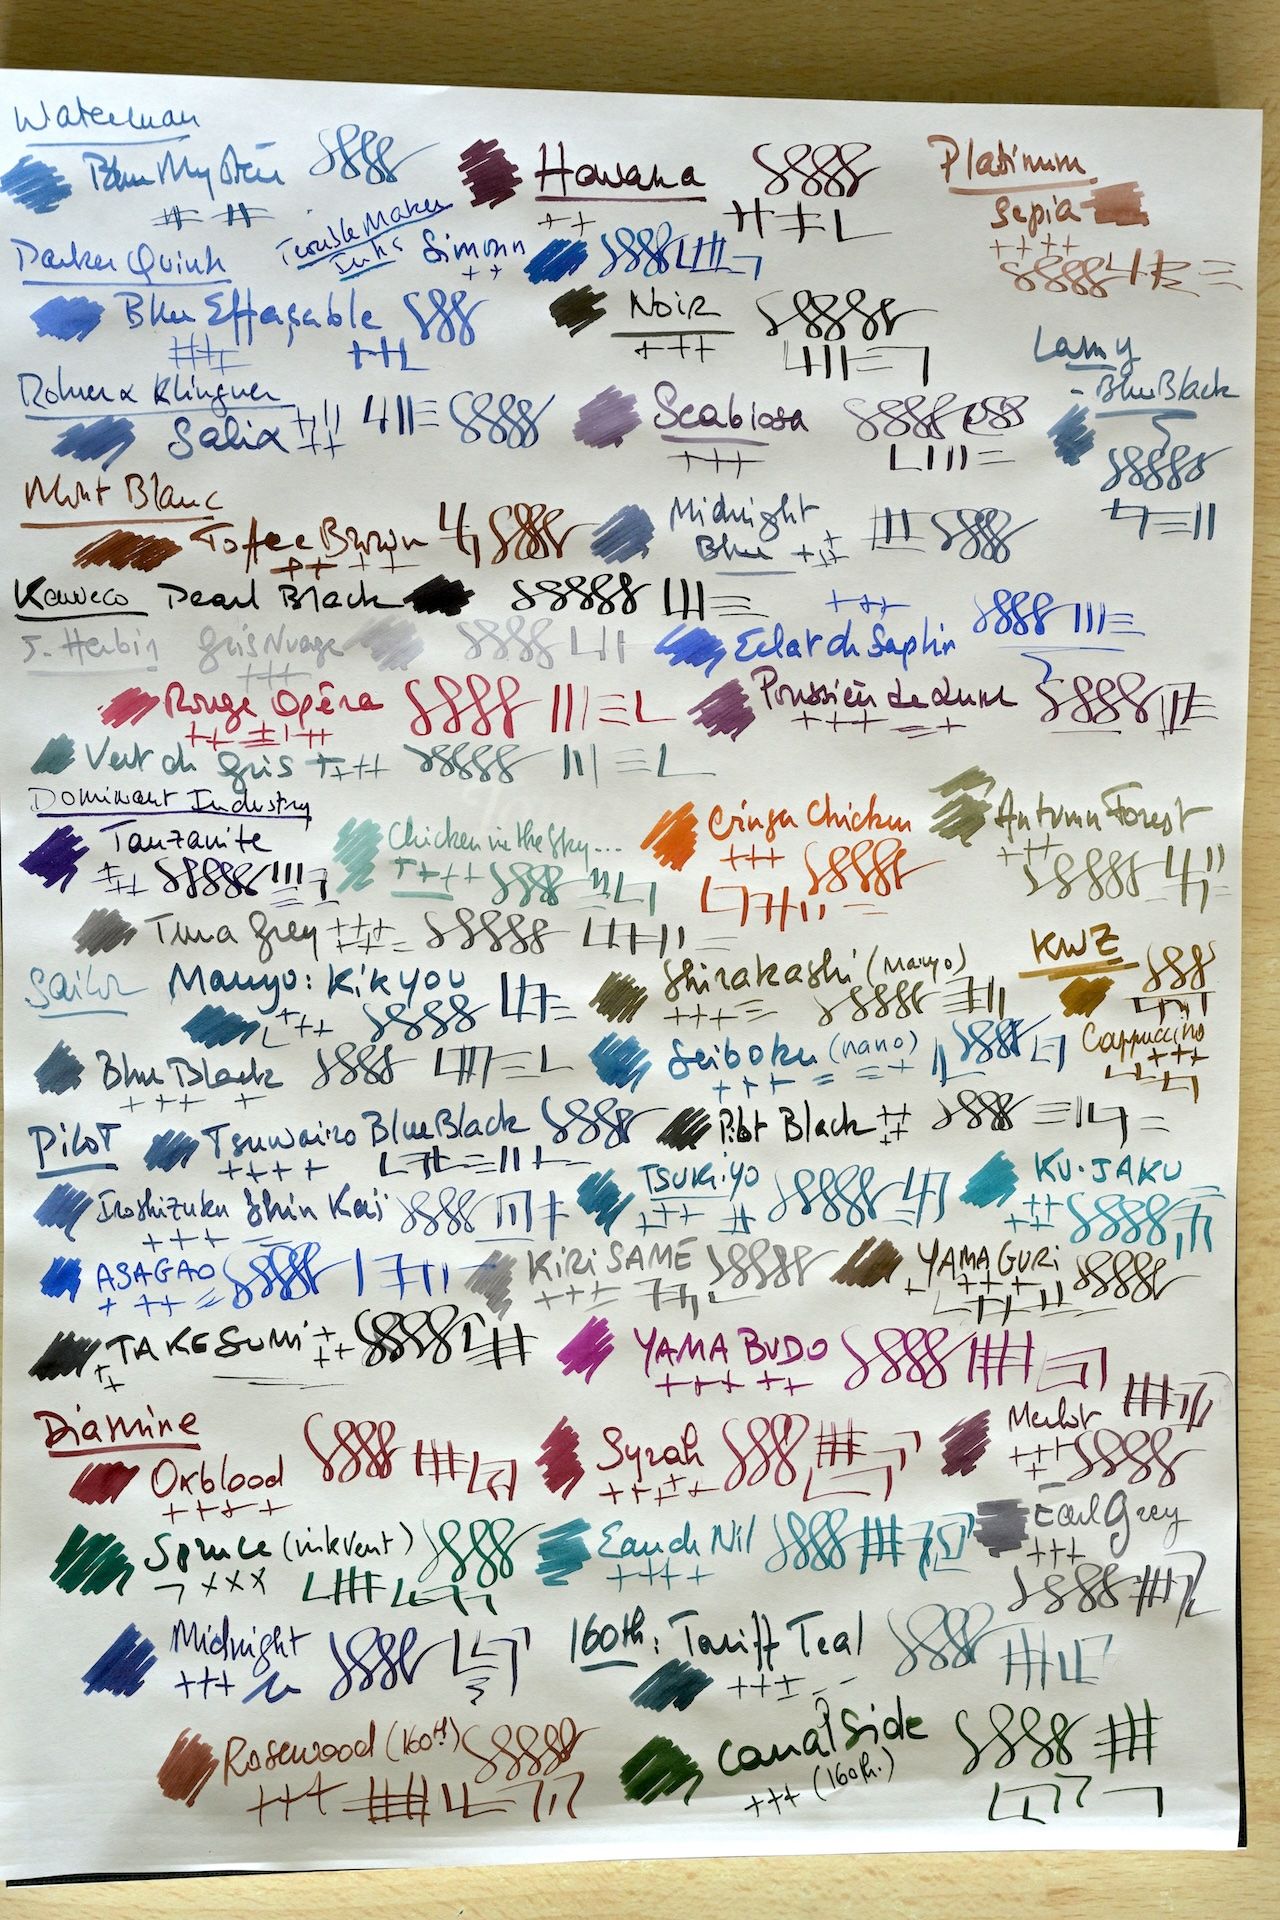 Waterman
Bleu Mystère
Havana
Platinum
Sepia
TroubleMaker
Inks
Simonn
Parker Quink
Bleu Effaçable
Noir
Lamy
- Blue Black
Rohrer & Klingner
Salix
Scabiosa
Mont Blanc
Toffee Brown
Midnight
Blue
Kaweco Pearl Black
J. Herbin Gris Nuage
Eclat de Saphir
Rouge Opéra
Poussière de Lune
Vert de Gris
Dominant Industry
Tanzanite
Chicken in the Sky...
Ginger Chicken
Autumn Forest
Grey
KWZ
Cappuccino
Sailor Manyo: Kikyou
Shirakashi (Manyo)
Blue Black
Seiboku (nano)
Pilot Tsuwairo Blue Black
Pilot Black
Iroshizuku Shin Kai
TSUKIYO
KU-JAKU
ASAGAO
KIRISAME
YAMAGURI
TAKESUMI
YAMA BUDO
Diamine
Oxblood
Syrah
Merlot
Spruce (inkvent)
Eau de Nil
Earl Grey
Midnight
160th: Tariff Teal
Rosewood (160th)
Canalside
(160th.)